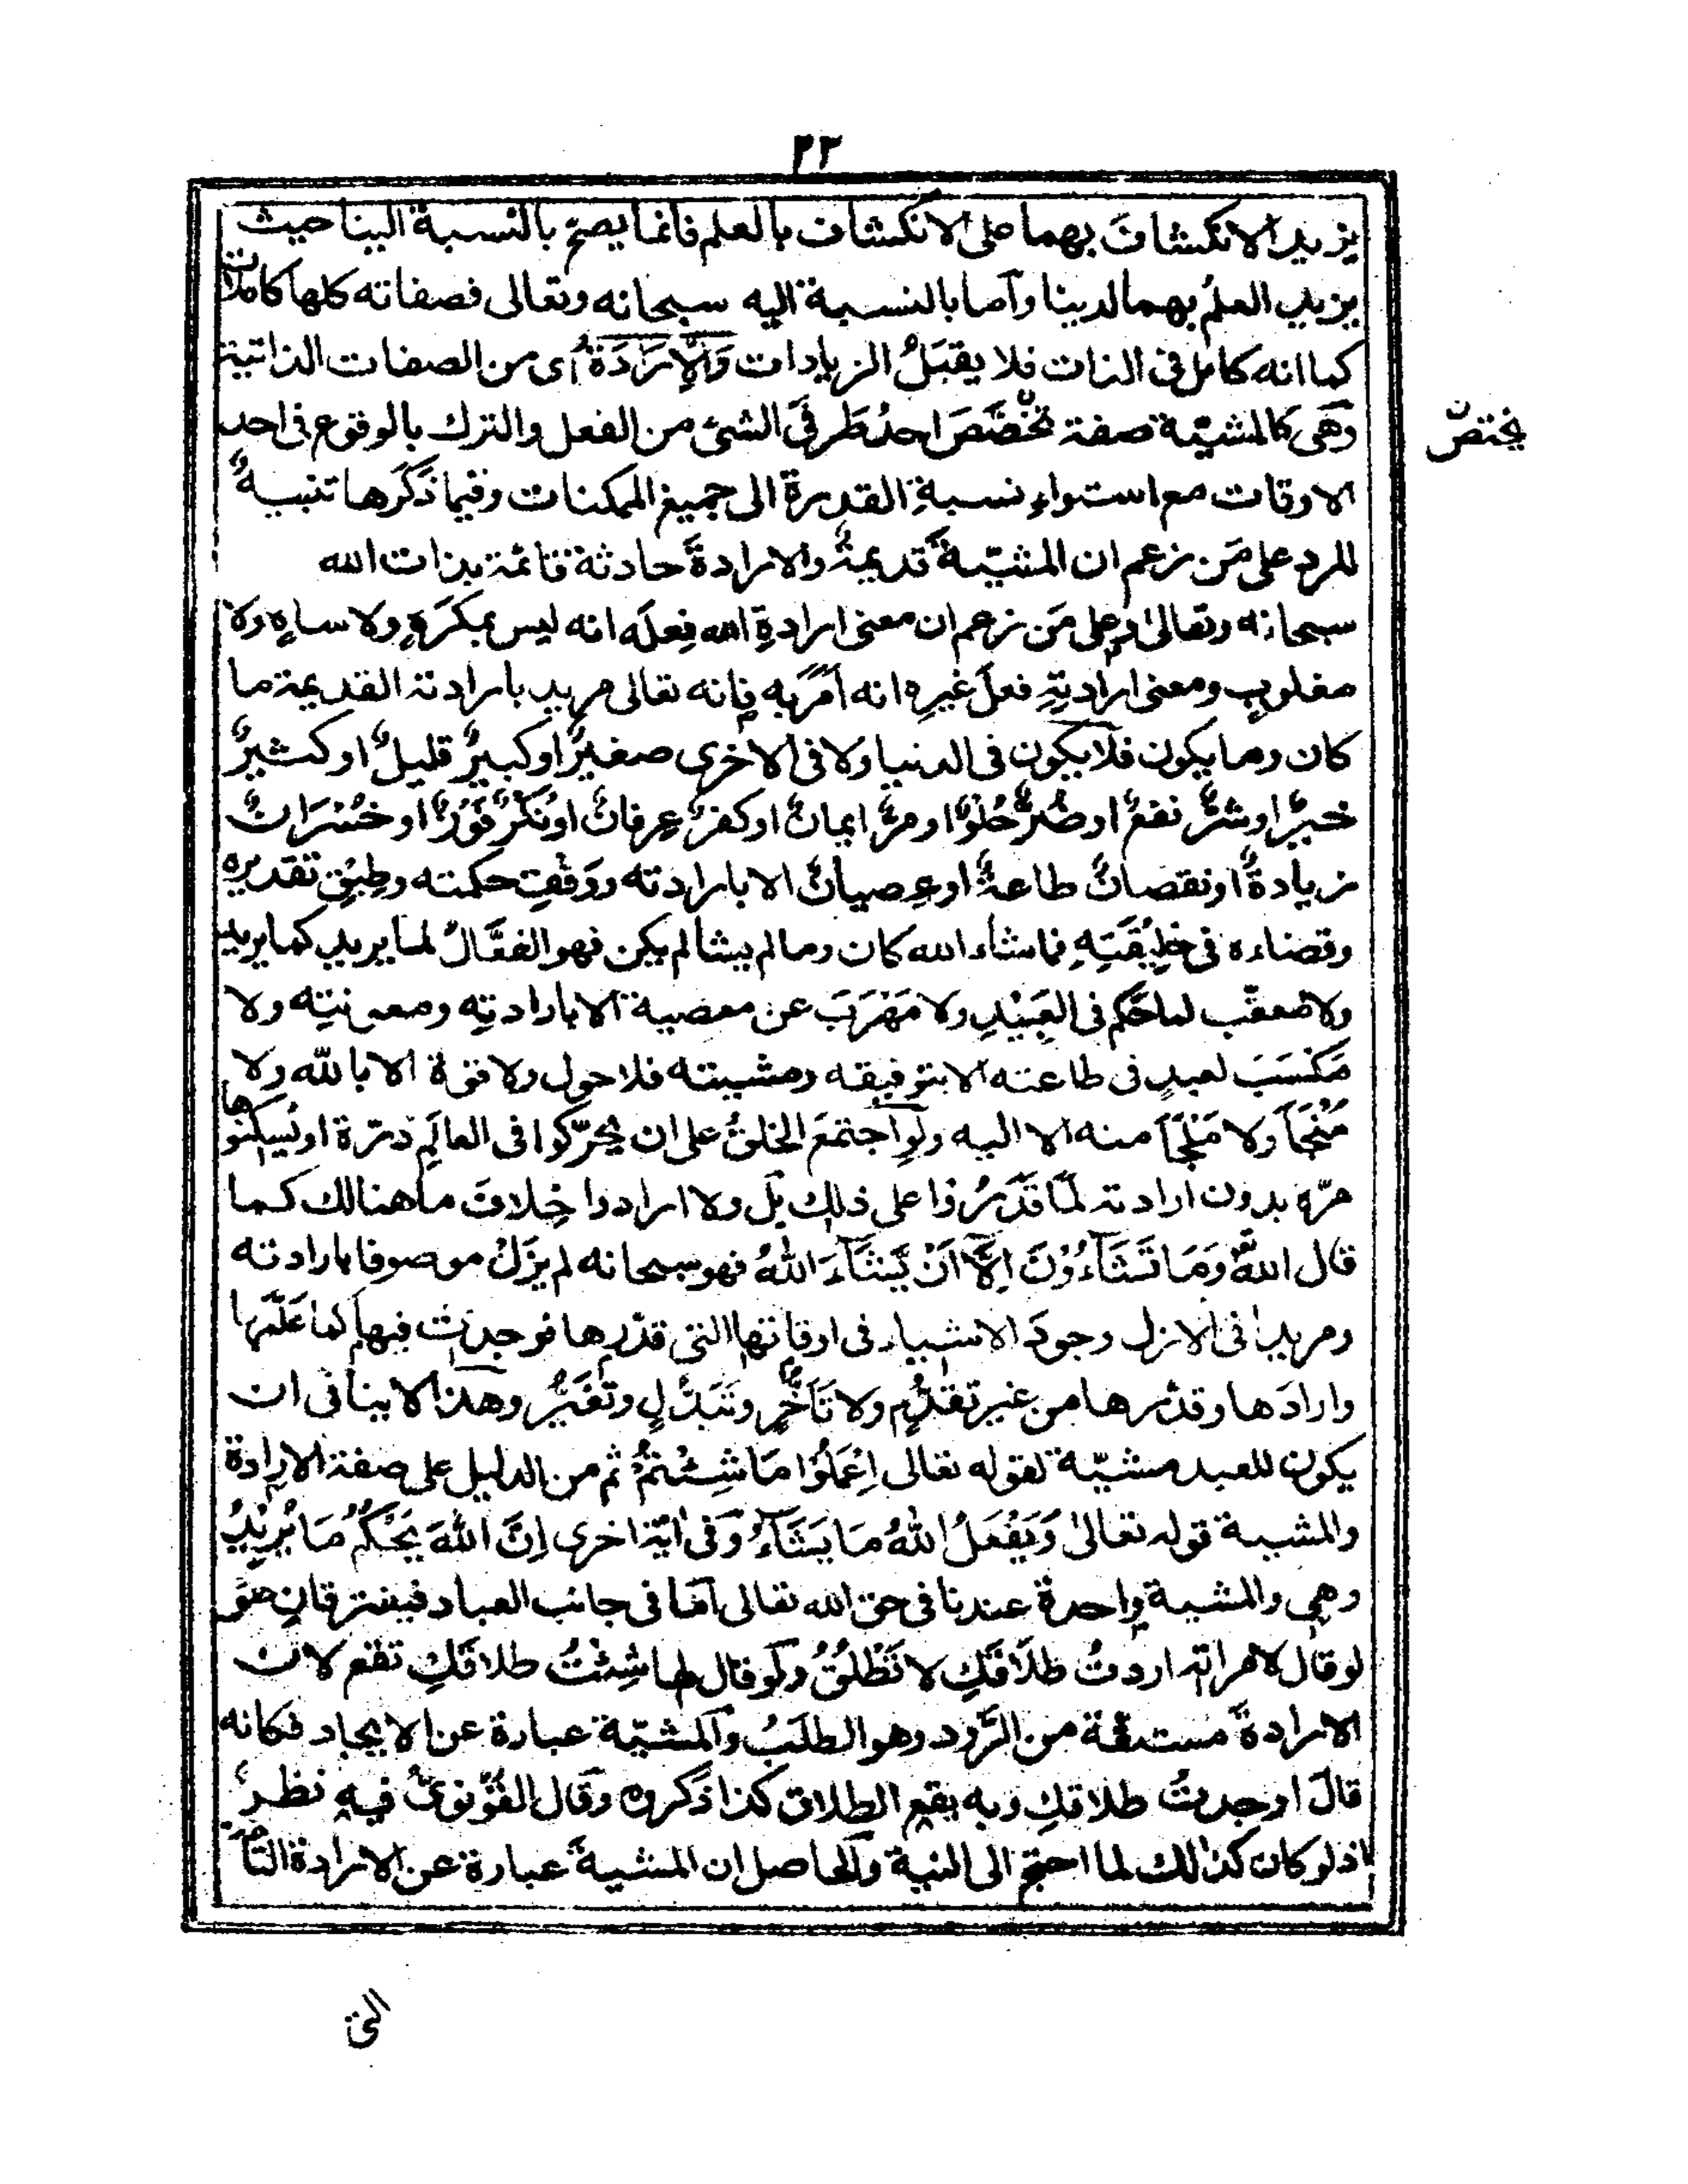 ٢٣
يزيد الانكشاف بهما على الانكشاف بالعلم فانما يصح بالنسبة الينا حيث
يزيد العلمُ بهما لدينا وآما بالنسبة اليه سبحانه وتعالى فصفاته كلها كاملات
كما انه كامل فى الذات فلا يقبَلُ الزيادات وَالْاِرَادَةُ اى من الصفات الذاتية
وهى كالمشيّة صفة تخصّصَ احدُ طَرفَىِ الشئ من الفعل والترك بالوقوع فى احد
يختصّ
الاوقات مع استواءِ نسبةِ القدرة الى جميع الممكنات وفيما ذكرها تنبيهٌ
للرد على مَن زعم ان المشيّةَ قديمةٌ والارادةَ حادثة قائمة بذات الله
سبحانه وتعالى وعلى مَن زعم ان معنى ارادةِ الله فِعلَه انه ليس بمكرَهٍ ولا ساهٍ ولا
مغلوبٍ ومعنى ارادتِهِ فعلَ غيرِه انه اَمَرَ به فانه تعالى مريد بارادته القديمة ما
كان وما يكون فلا يكون فى الدنيا ولا فى الاخرى صغيرٌ او كبيرٌ قليلٌ او كثيرٌ
خيرٌ او شرٌّ نفعٌ او ضُرٌّ حُلوٌ او مرٌّ ايمانٌ او كفرٌ عِرفانٌ او نُكْرٌ فَوْزٌ او خُسْرَانٌ
زيادةٌ او نقصانٌ طاعةٌ او عِصيانٌ الا بارادته ووَفْقِ حكمته وطِبْقِ تقديره
وقضاءه فى خلِيْقَتِهِ فما شاء الله كان وما لم يشا لم يكن فهو الفعَّالُ لما يريد كما يريد
ولا معقّب لما حَكم فى العَبِيْدِ ولا مَهْرَبَ عن معصية الا بارادتِه ومعونتِه ولا
مَكْسَبَ لعبدٍ فى طاعته الا بتوفيقه ومشيته فلا حول ولا قوة الا بالله ولا
مَنْجَأَ ولا مَلْجَأَ منه الا اليه ولوِ اجتمعَ الخلقُ على ان يحرّكوا فى العالَمِ ذرّة او يُسكنوها
مرّة بدون ارادته لمَا قَدَرُوا على ذلك بَلْ ولا ارادوا خِلافَ ما هنالك كما
قال اللهُ وَمَا تَشَآءُوْنَ اِلَّآ اَنْ يَّشَآءَ اللهُ فهو سبحانه لم يزَلْ موصوفا بارادته
ومريدا فى الازل وجودَ الاشياء فى اوقاتها التى قدّرها فوجدت فيها كما عَلّمها
وارادَها وقدّرها من غير تقدّمٍ ولا تَاَخّرٍ وتَبَدّلٍ وتَغَيّرٍ وهذا لا ينافى ان
يكون للعبد مشيّة لقوله تعالى اِعْمَلُوْا مَا شِئْتُمْ ثم من الدليل على صفة الارادة
والمشية قوله تعالىٰ وَيَفْعَلُ اللهُ مَا يَشَآءُ وَفى اٰية اخرى اِنَّ اللهَ يَحْكُمُ مَا يُرِيْدُ
وهى والمشية واحدة عندنا فى حق الله تعالى اَمّا فى جانب العباد فيفترقانِ حتى
لو قال لامراته اردتُ طلَاقَكِ لا تَطْلُقُ ولَو قال لها شِئْتُ طلاقَكِ تقع لان
الارادةَ مستقة من الرَّود وهو الطلَبُ والمشيّة عبارة عن الايجاد فكانه
قالَ اوجدتُ طلاقكِ وبه يقع الطلاق كذا ذكروه وقال القُوْنوىُّ فيه نظرٌ
اذ لو كان كذالك لما احتج الى النية والحاصل ان المشيةَ عبارة عن الارادة التامّة
التى